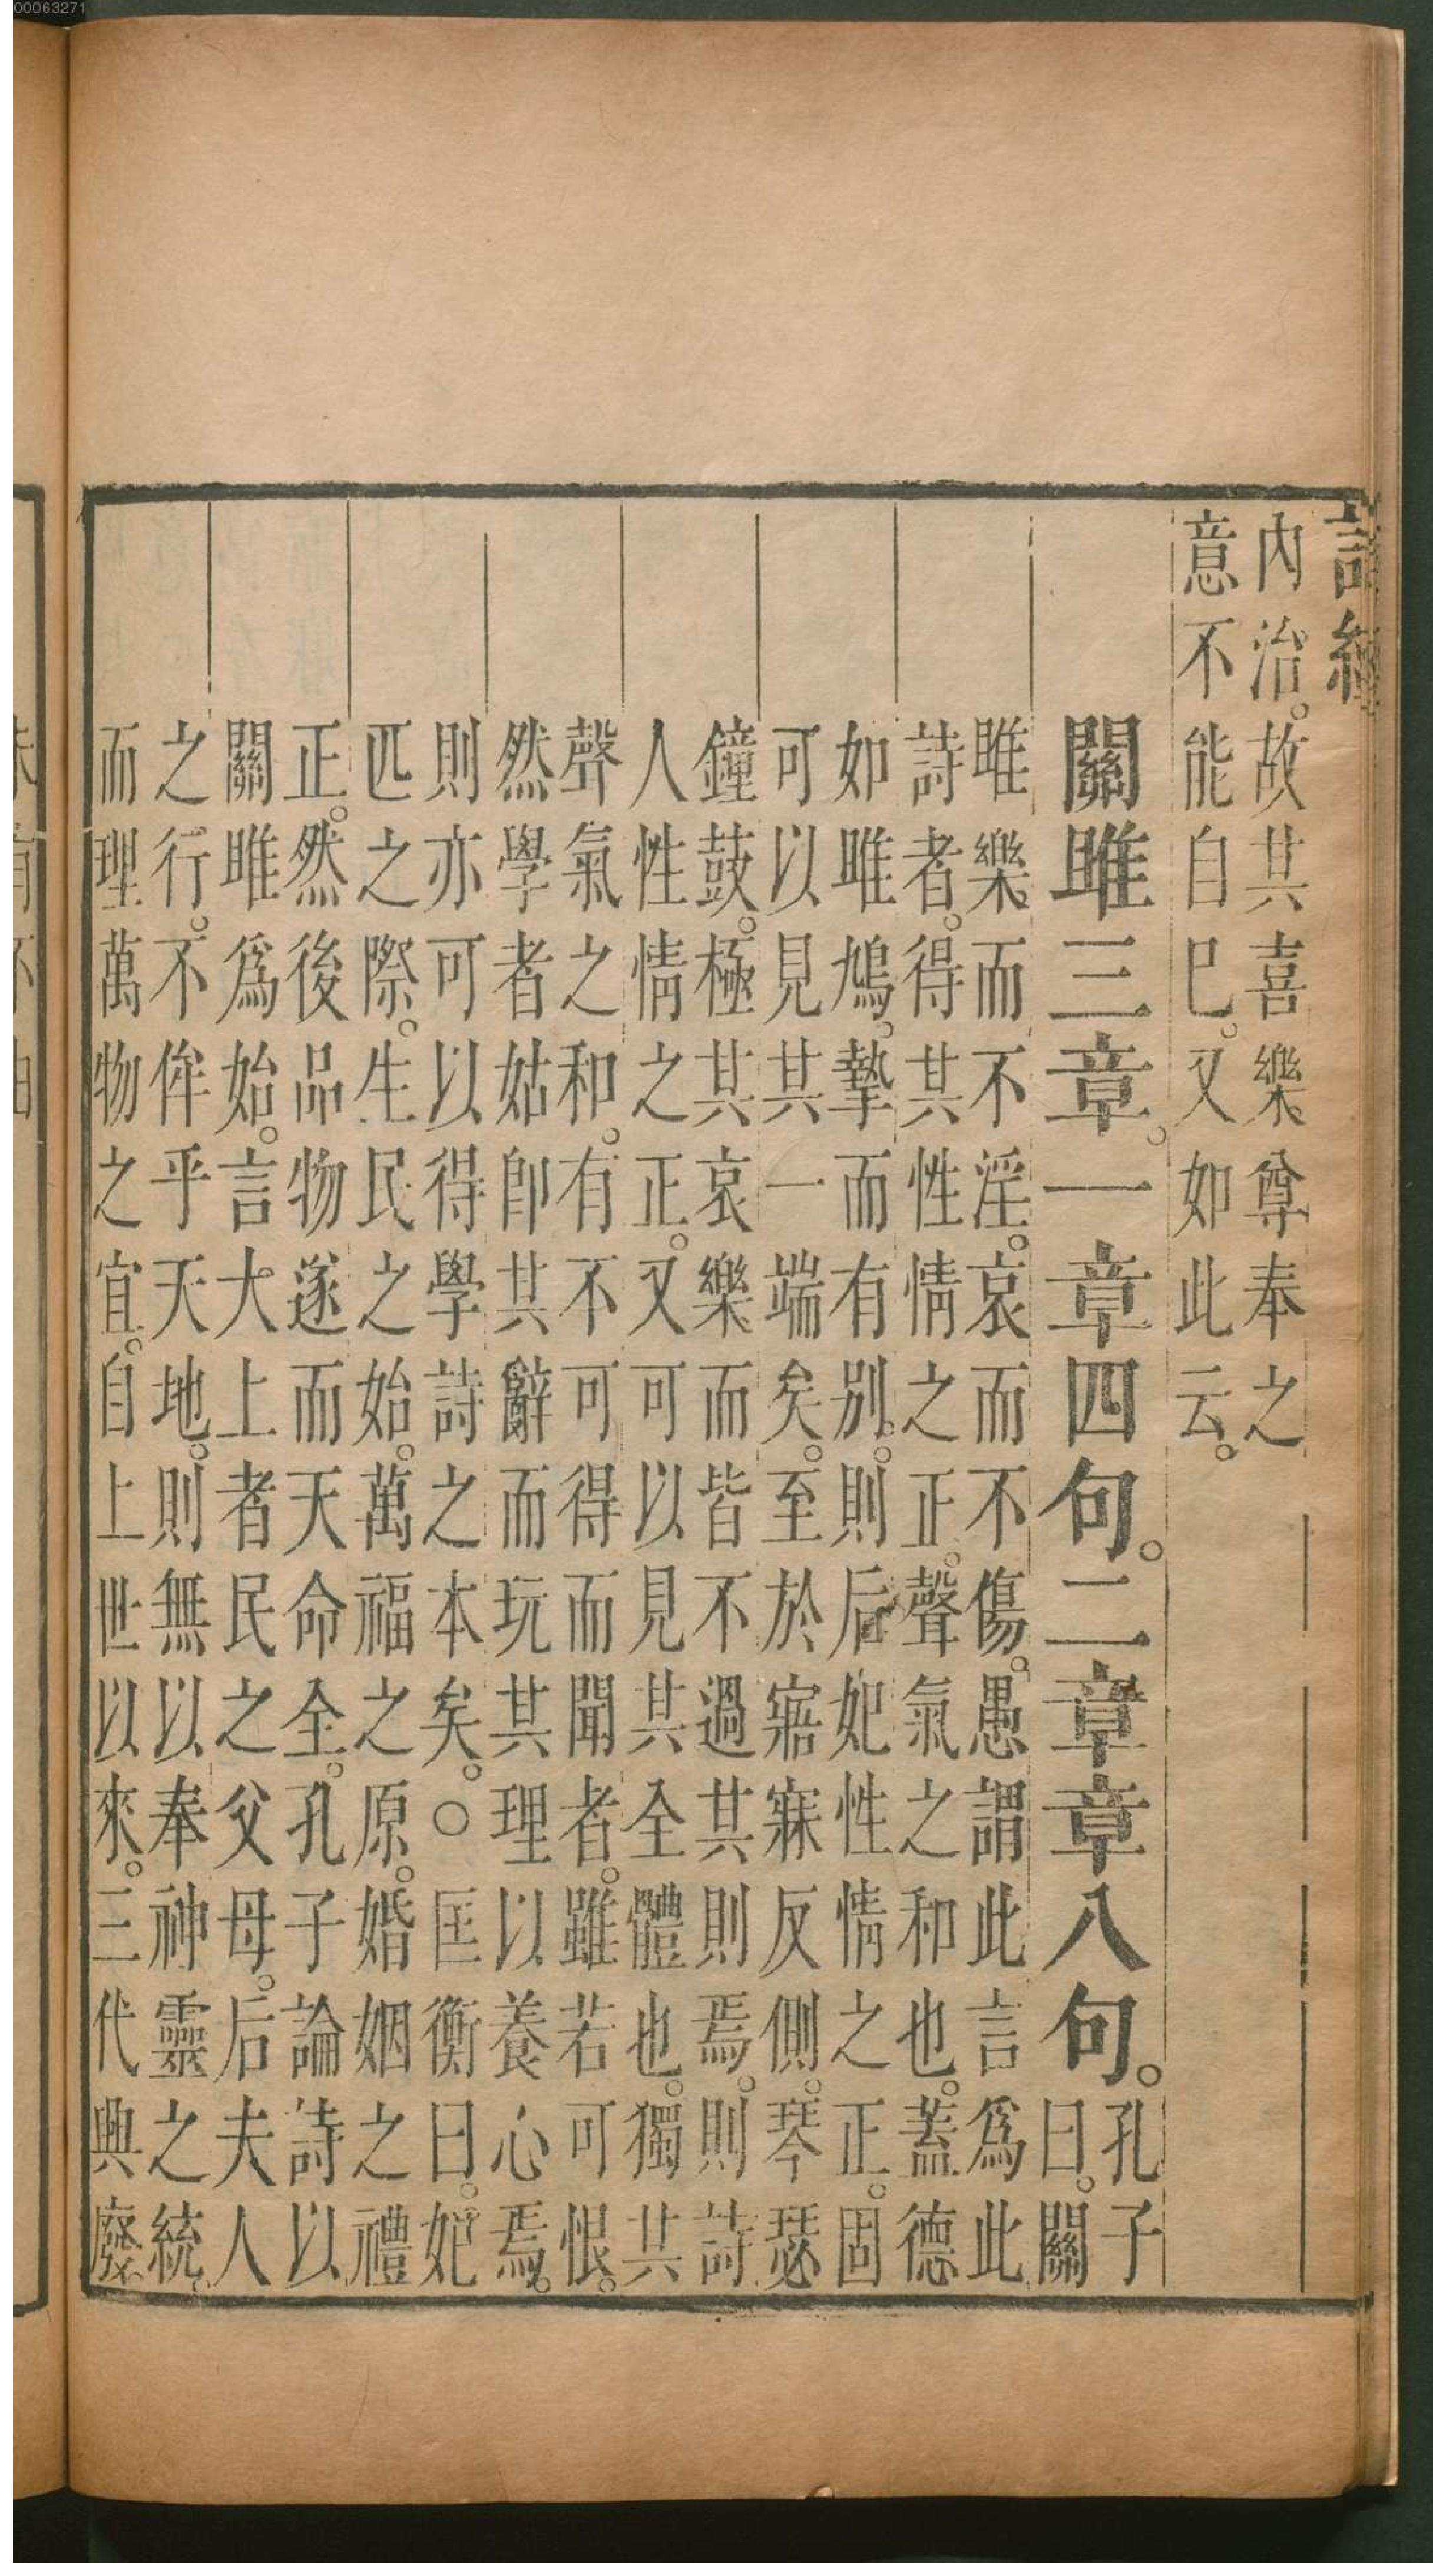 00063271
詩經
內治。故其喜樂尊奉之
意不能自已。又如此云。
關雎三章。一章四句。二章章八句。
孔子
曰。關
雎樂而不淫。哀而不傷。愚謂此言爲此
詩者。得其性情之正。聲氣之和也。蓋德
如雎鳩。摯而有別。則后妃性情之正。固
可以見其一端矣。至於寤寐反側。琴瑟
鐘鼓。極其哀樂而皆不過其則焉。則詩
人性情之正。又可以見其全體也。獨其
聲氣之和。有不可得而聞者。雖若可恨。
然學者姑卽其辭而玩其理以養心焉。
則亦可以得學詩之本矣。○匡衡曰。妃
匹之際。生民之始。萬福之原。婚姻之禮
正。然後品物遂而天命全。孔子論詩以
關雎爲始。言大上者民之父母。后夫人
之行。不侔乎天地。則無以奉神靈之統。
而理萬物之宜。自上世以來。三代興廢。